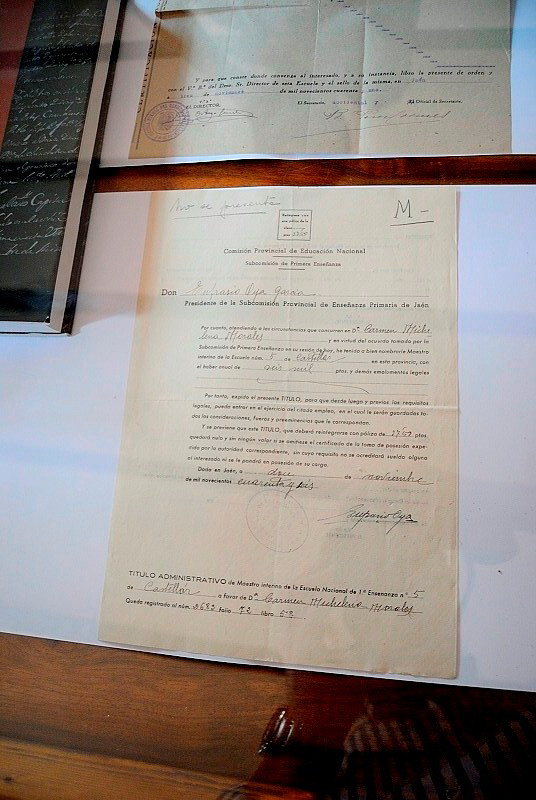 Y para que conste donde convenga al interesado, y a su instancia, libro la presente de orden y
con el V.º B.º del Ilmo. Sr. Director de esta Escuela y el sello de la misma, en
de noviembre de mil novecientos cuarenta y
V.º B.º
EL DIRECTOR, El Secretario, Oficial de Secretaría,
No se presenta
M-
Reintégrese con
una póliza de
Comisión Provincial de Educación Nacional
Subcomisión de Primera Enseñanza
Don Eufrasio Oya García
Presidente de la Subcomisión Provincial de Enseñanza Primaria de Jaén
Por cuanto, atendiendo a las circunstancias que concurren en D.ª Carmen Miche
lena Morales y en virtud del acuerdo tomado por la
Subcomisión de Primera Enseñanza en su sesión de hoy, he tenido a bien nombrarle Maestro
interino de la Escuela núm. 5 de Castellar en esta provincia, con
el haber anual de seis mil ptas. y demás emolumentos legales
Por tanto, expido el presente TITULO, para que desde luego y previos los requisitos
legales, pueda entrar en el ejercicio del citado empleo, en el cual le serán guardadas to-
das las consideraciones, fueros y preeminencias que le correspondan.
Y se previene que este TITULO, que deberá reintegrarse con póliza de ptas
quedará nulo y sin ningún valor si se omitiese el certificado de la toma de posesión expe-
dido por la autoridad correspondiente, sin cuyo requisito no se acreditará sueldo alguno
al interesado ni se le pondrá en posesión de su cargo.
Dado en Jaén, a doce de noviembre
de mil novecientos cuarenta y seis
Eufrasio Oya
TITULO ADMINISTRATIVO de Maestro interino de la Escuela Nacional de 1.ª Enseñanza n.º 5
de Castellar a favor de D.ª Carmen Michelena Morales
Queda registrado al núm. 8683 folio 72 libro 5-2.